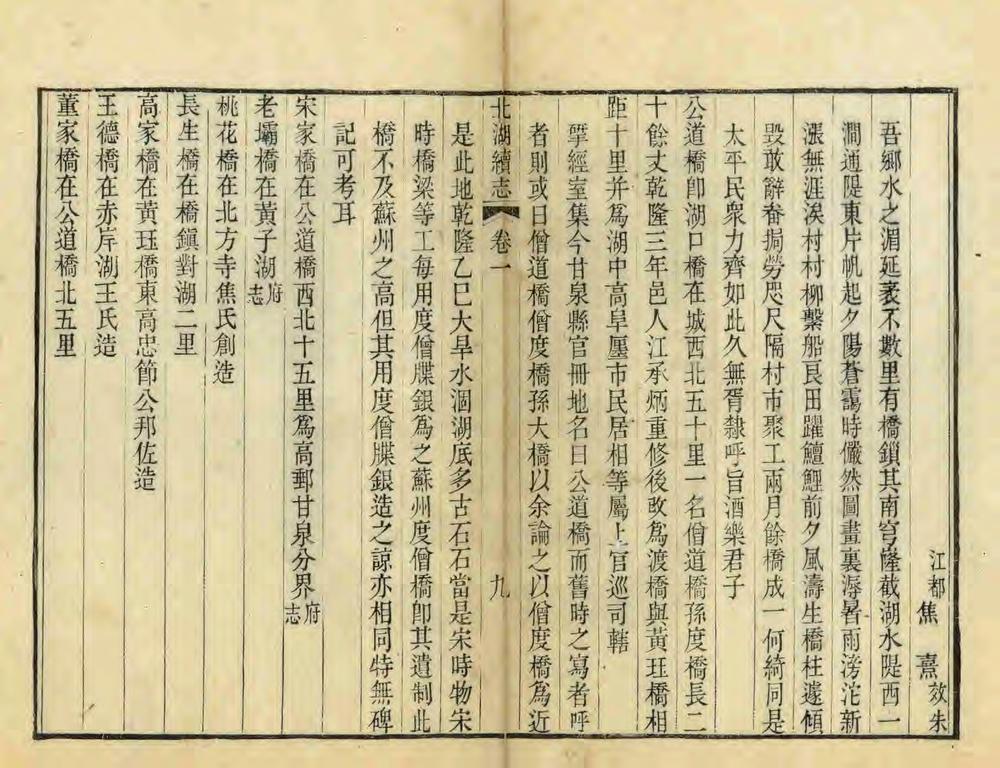 江都焦熹效朱
吾鄉水之湄延袤不數里有橋鎖其南穹隆截湖水隄西一
澗通隄東片帆起夕陽蒼靄時儼然圖畫裏溽暑雨滂沱新
漲無涯涘村村柳繫船艮田躍鱣鯉前夕風濤生橋柱遽傾
毀敢辭畚挶勞咫尺隔村市聚工兩月餘橋成一何綺同是
太平民衆力齊如此久無胥隸呼旨酒樂君子
公道橋卽湖口橋在城西北五十里一名僧道橋孫度橋長二
十餘丈乾隆三年邑人江承炳重修後改爲渡橋與黃珏橋相
距十里并爲湖中高阜廛市民居相等屬上官巡司轄
揅經室集今甘泉縣官冊地名曰公道橋而舊時之寫者呼
者則或曰僧道橋僧度橋孫大橋以余論之以僧度橋爲近
北湖續志 卷一 九
是此地乾隆乙巳大旱水涸湖底多古石石當是宋時物宋
時橋梁等工每用度僧牒銀爲之蘇州度僧橋卽其遺制此
橋不及蘇州之高但其用度僧牒銀造之諒亦相同特無碑
記可考耳
宋家橋在公道橋西北十五里爲高郵甘泉分界府志
老壩橋在黃子湖府志
桃花橋在北方寺焦氏創造
長生橋在橋鎮對湖二里
高家橋在黃珏橋東高忠節公邦佐造
王德橋在赤岸湖王氏造
董家橋在公道橋北五里